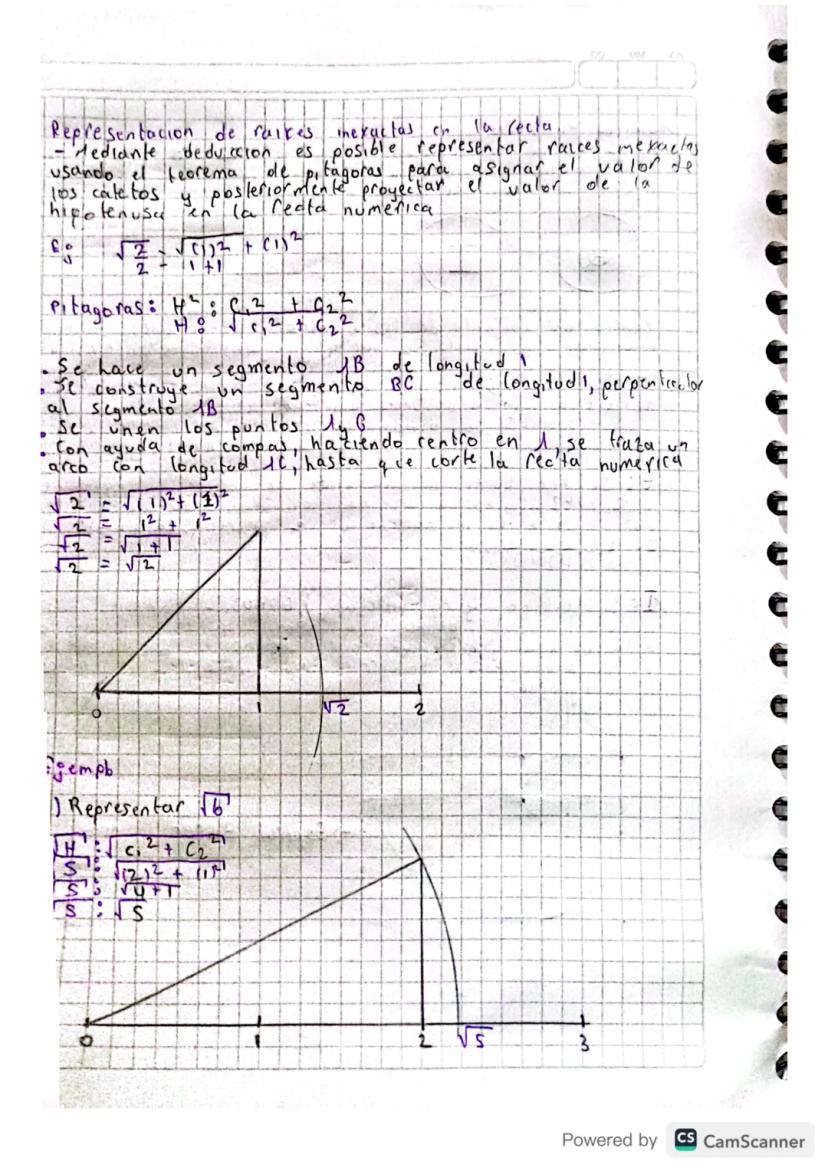 Representacion de raices inexactas en la recta
- Mediante deduccion es posible representar raices inexactas
usando el teorema de pitagoras para asignar el valor de
los catetos y posteriormente proyectar el valor de la
hipotenusa en la recta numerica
Ej √2 = √(1)² + (1)²
2 = 1+1
Pitagoras: H² : C₁² + C₂²
H : √C₁² + C₂²
. Se hace un segmento AB de longitud 1
. Se construye un segmento BC de longitud 1, perpendicular
al segmento AB
. Se unen los puntos A y C
. Con ayuda de compas, haciendo centro en A, se traza un
arco con longitud AC, hasta que corte la recta numerica
√2 = √(1)² + (1)²
√2 = 1² + 1²
√2 = √1+1
√2 = √2
0 1 √2 2
Ejemplo
) Representar √6
√H : √C₁² + C₂²
√5 : √(2)² + (1)²
√5 : √4+1
√5 : √5
0 1 2 √5 3
Powered by CS CamScanner